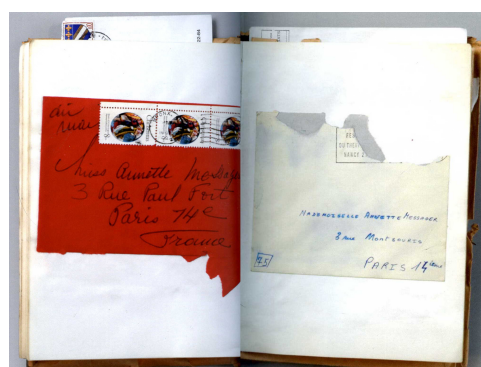 air
mail
Miss Annette Messager
3 Rue Paul Fort
Paris 14e
France
MADEMOISELLE ANNETTE MESSAGER
3 RUE MONTSOURIS
PARIS 14ième